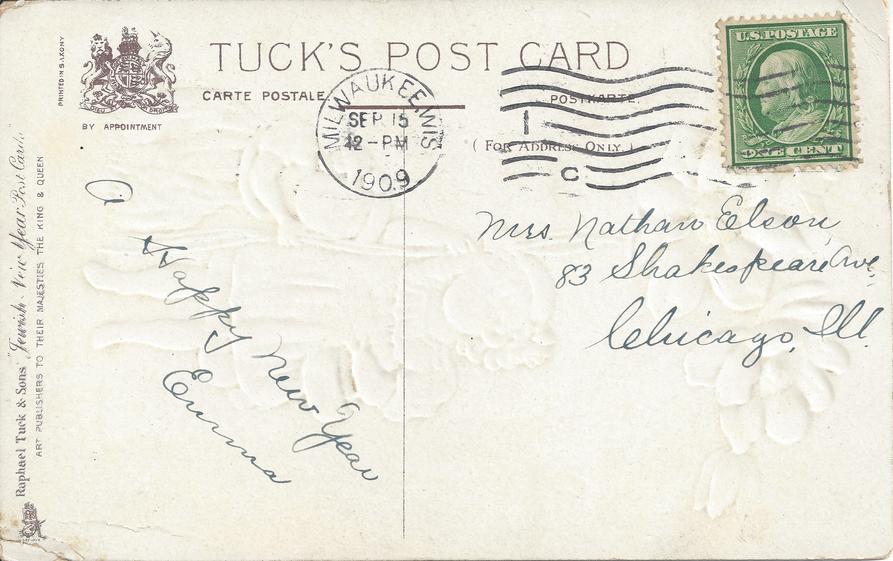 TUCK'S POST CARD
CARTE POSTALE.
POSTKARTE.
( FOR ADDRESS ONLY. )
PRINTED IN SAXONY
BY APPOINTMENT
MILWAUKEE, WIS
SEP 15
12-PM
1909
1
C
U.S. POSTAGE
ONE CENT
Raphael Tuck & Sons' "Jewish New Year Post Cards"
ART PUBLISHERS TO THEIR MAJESTIES THE KING & QUEEN
A
Happy New Year
Emma
Mrs. Nathan Elson,
83 Shakespeare Ave.
Chicago, Ill.